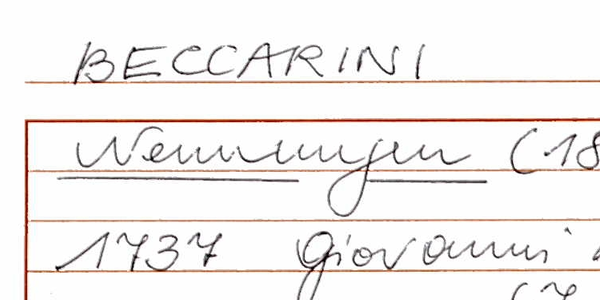 BECCARINI
Nennungen (18
1737 Giovanni